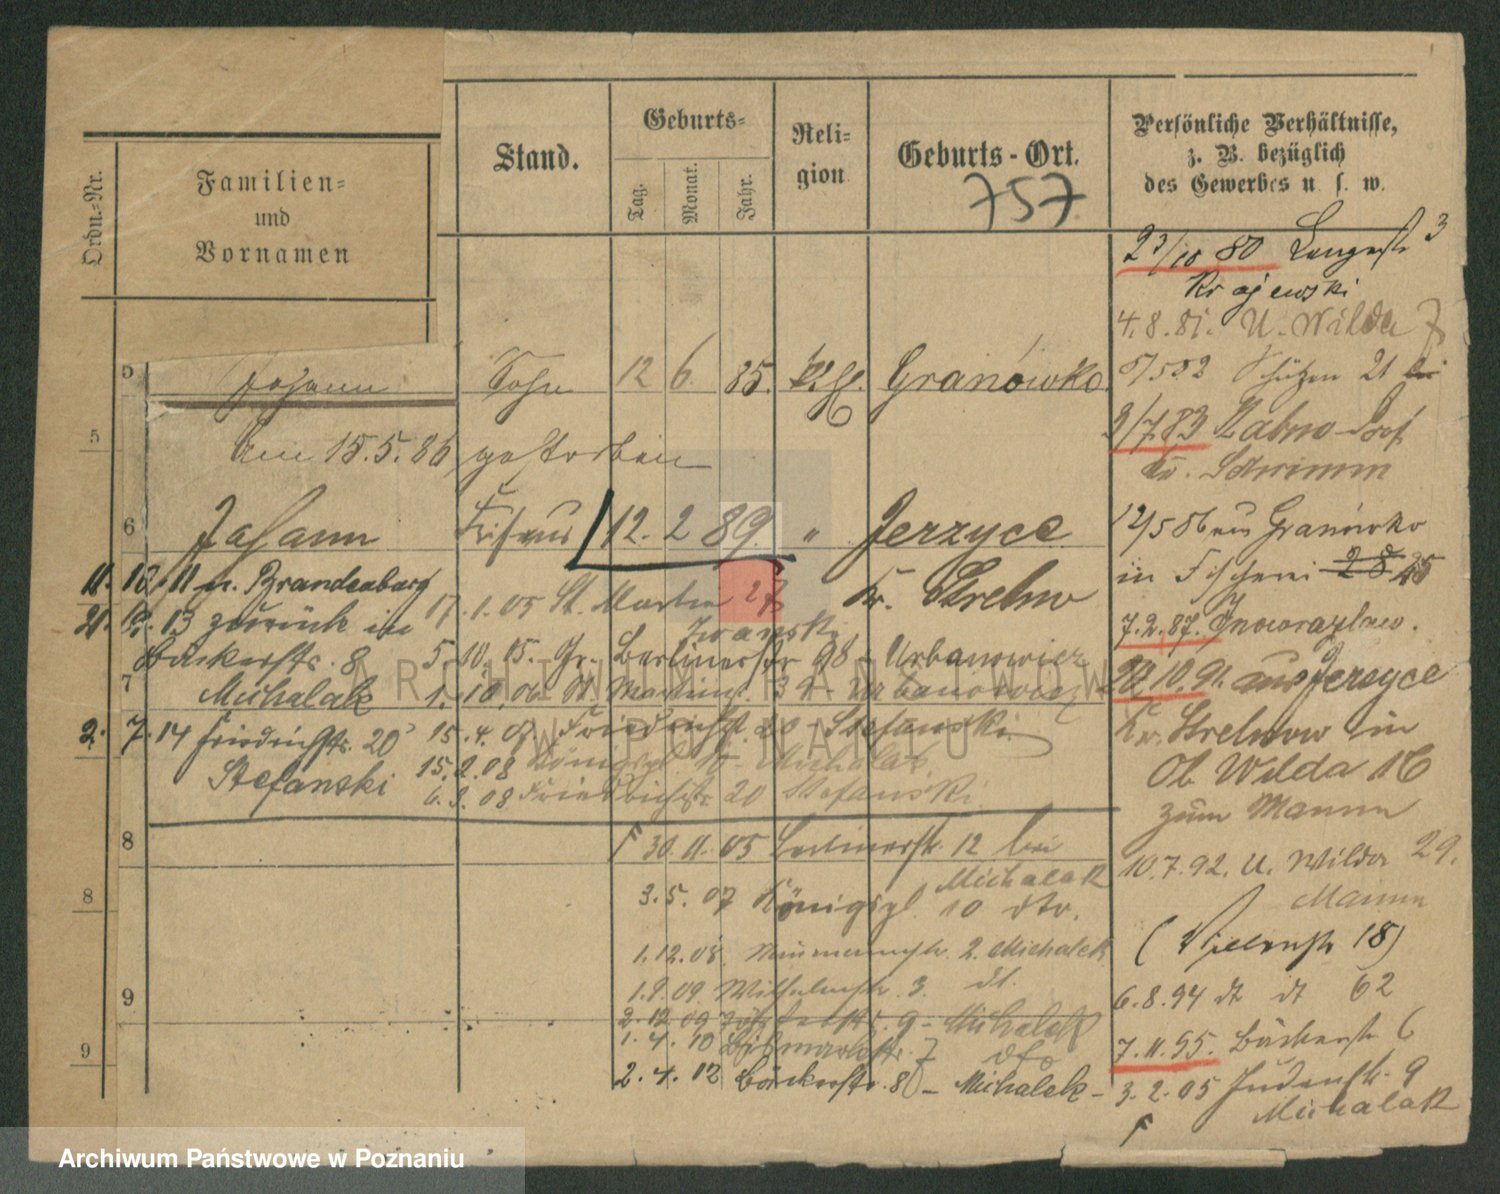 Ordn.-Nr.
Familien-
und
Vornamen
Stand.
Geburts-
Tag.
Monat.
Jahr.
Reli-
gion
Geburts-Ort.
757
Persönliche Verhältnisse,
z. B. bezüglich
des Gewerbes u. s. w.
5 Johann Sohn 12 6. 85. Granówko
5
Am 15.5.86 gestorben
6 Johann Friseur 12. 2 89. " Jerzyce
Kr. Strelno
11. 10. 11 n. Brandenburg
21. 13 zurück in
Bäckerstr. 8
7 Michalak
2. 7. 14 Friedrichstr. 20
Stefanski
17. 1. 05 St. Martin 27
5. 10. 05. Gr. Berlinerstr 98 - Urbanowicz
1. 10. 06 St. Martinst. - Urbanowicz
15. 4. 07 Friedrichst. 20 Stefanski
15. 2. 08 Königspl. Michalak
6. 3. 08 Friedrichstr. 20 Stefanski
8
30. 11. 05 12 bei
Michalak
3. 5. 07 Königspl. 10 dto.
8
1. 12. 08. Naumannstr. 2. Michalak
1. 9. 09 Wilhelmstr. 3. dt.
9
2. 12. 09 9 - Michalak
1. 4. 10 Bismarckstr. 7 dto
9
2. 4. 12 Bäckerstr. 8 - Michalek -
23/10 80 Langestr 3
Krajewski
4. 8. 81. U. Wilda 7
Schützen 21 bei
3/7 83 Zabno Dorf
Kr. Schrimm
12/5 86 aus Granówko
in Fischerei 28 25
7. 2. 87. Inowrazlaw.
10. 91. aus Jerzyce
Kr. Strelnow in
Ob Wilda 16
zum Mann
10. 7. 92. U. Wilda 29.
Mann
18)
6. 8. 94 dt dt 62
7. 11. 95. Bäckerstr 6
3. 2. 05 Judenstr. 9
Michalak
ARCHIWUM PAŃSTWOWE
W POZNANIU
Archiwum Państwowe w Poznaniu